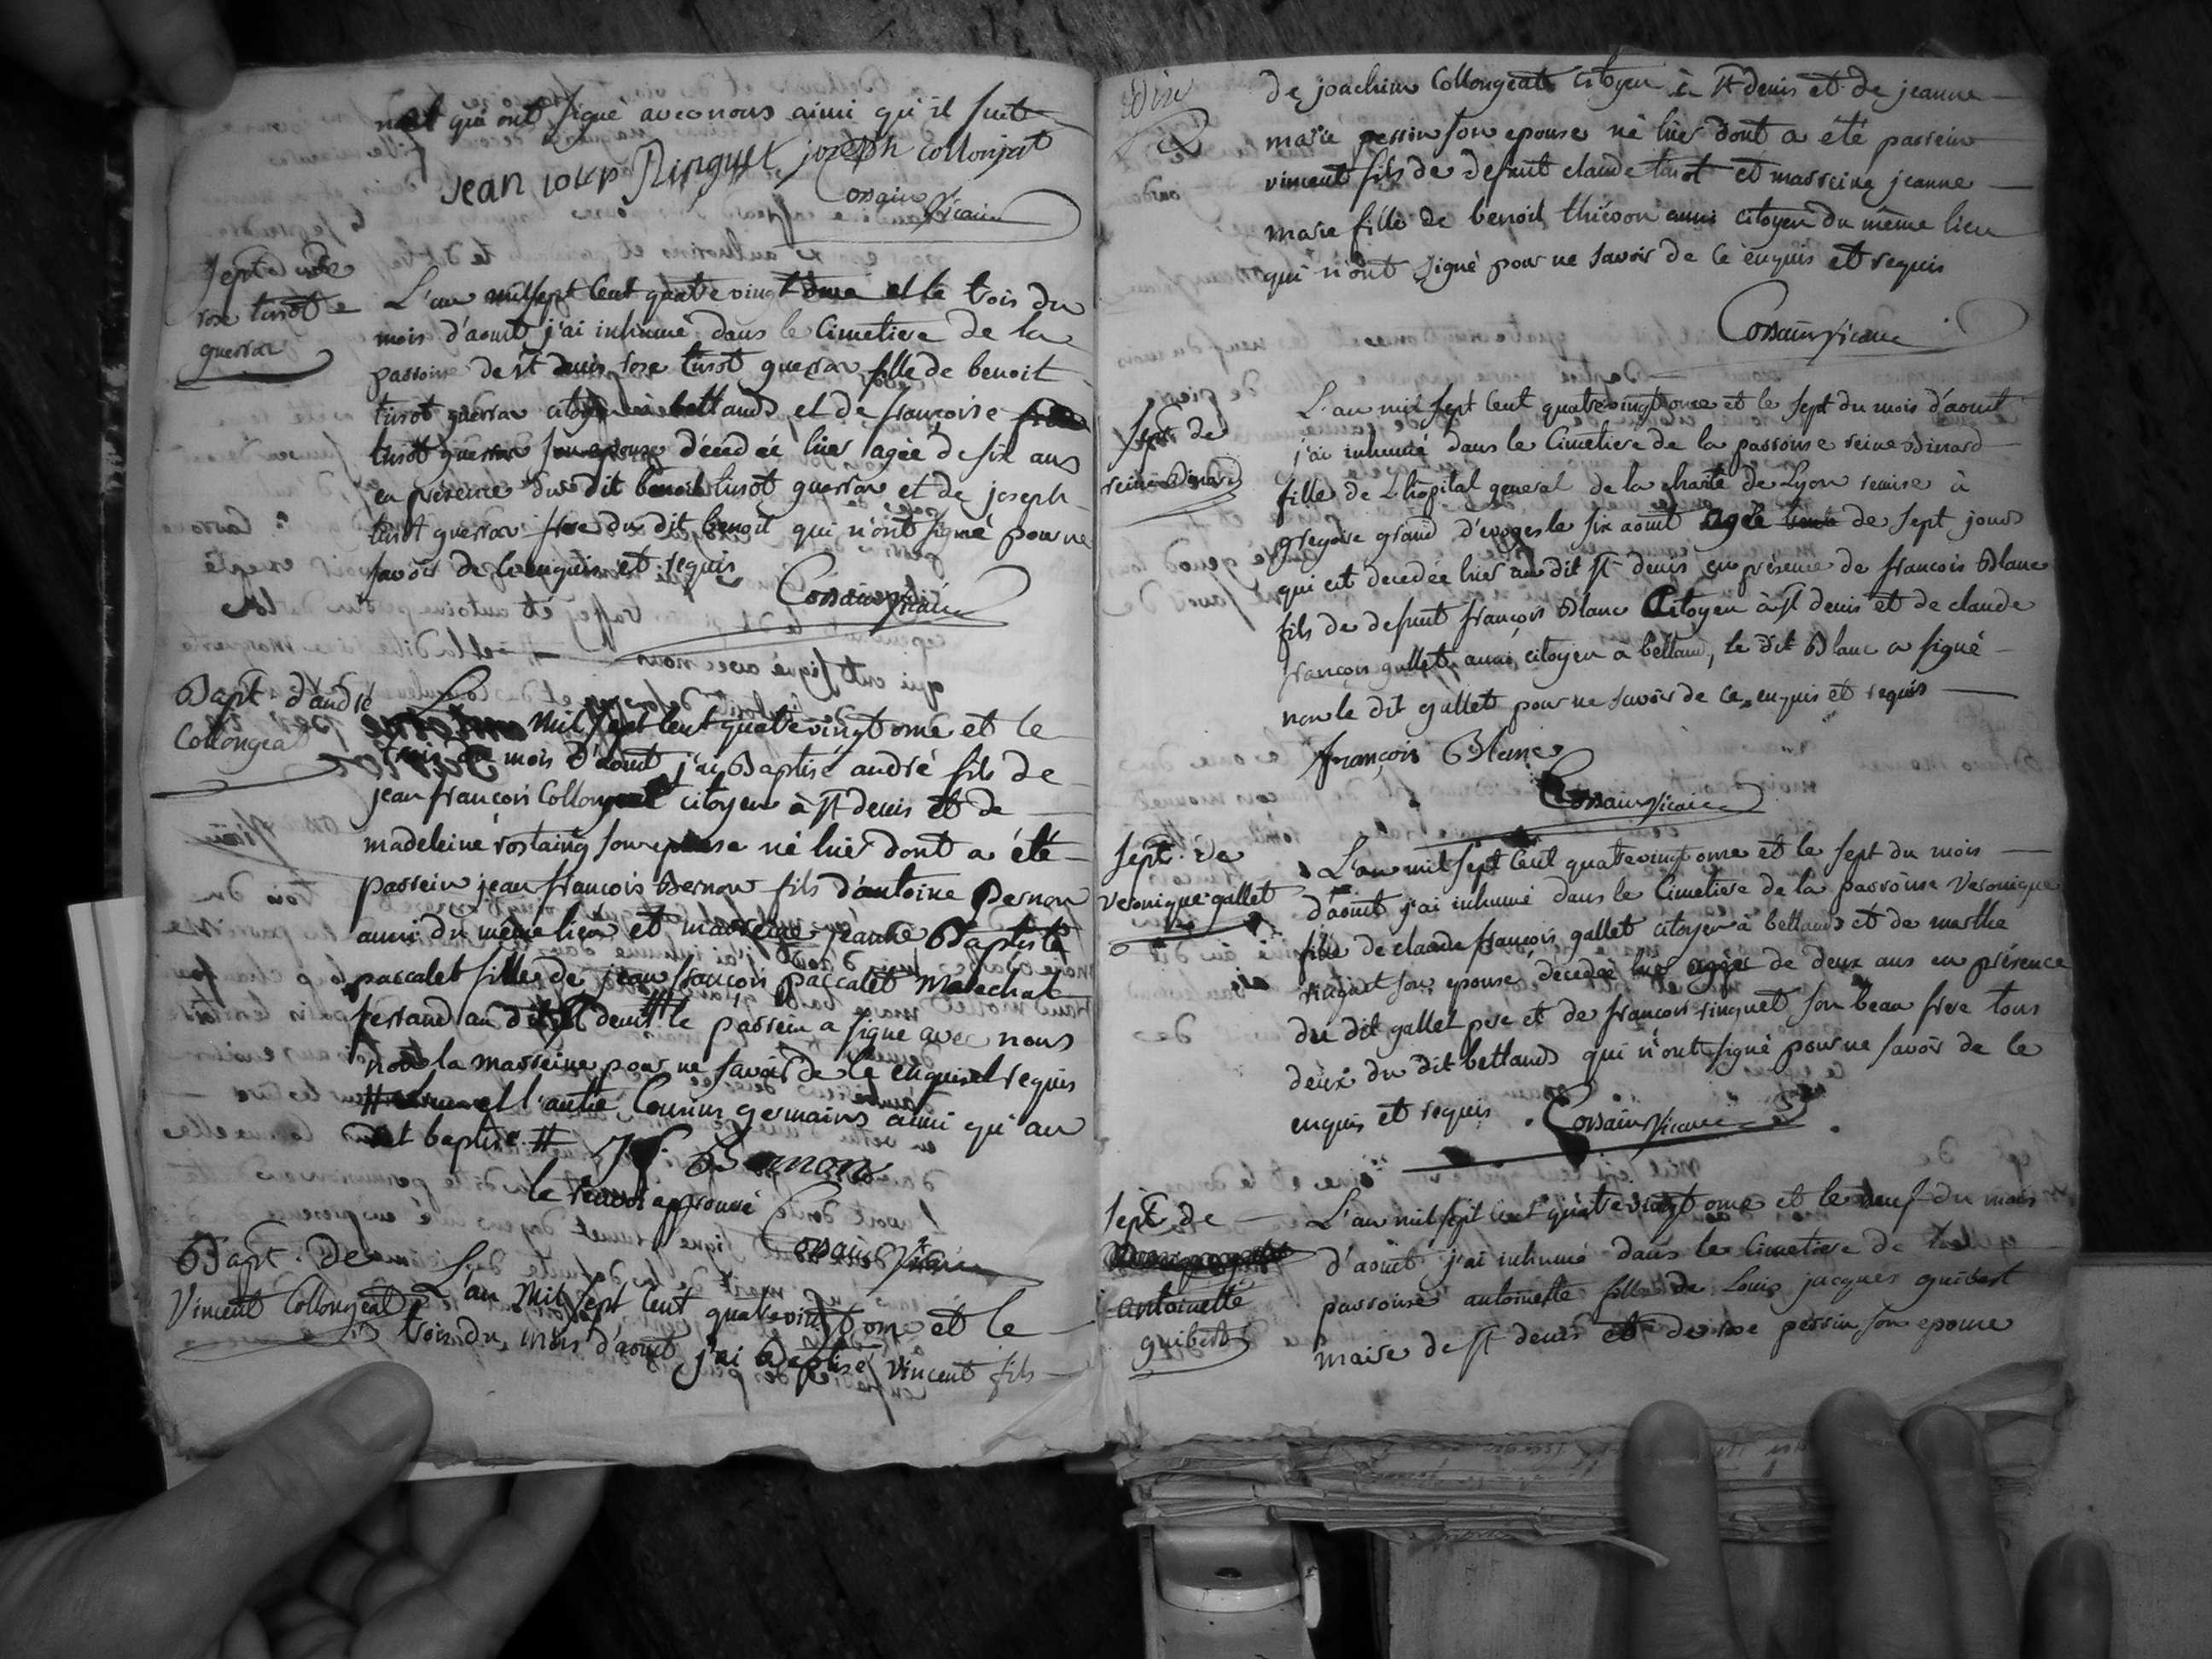 qui ont signé avec nous ainsi qu'il suit
jean loup Ringuet joseph collonjat
Cossain vicaire
Sept. de
rose tirot
guerrar
L'an mil sept cent quatre vingt onze et le trois du
mois d'aout j'ai inhumé dans le cimetiere de la
parroisse de st denis rose tirot guerrar fille de benoit
tirot guerrar citoyen à bettands et de francoise
tirot guerrar son epouse décédée hier agée de six ans
en présence du dit benoit tirot guerrar et de joseph
tirot guerrar frere du dit benoit qui n'ont signé pour ne
savoir de ce enquis et requis
Cossain vicaire
Bapt. d'andré
Collongeat
L'an mil sept cent quatre vingt onze et le
trois du mois d'aout j'ai Baptisé andré fils de
jean françois Collongeat citoyen à st denis et de
madeleine rostaing son epouse né hier dont a été
parrein jean francois Bernon fils d'antoine Bernon
aussi du même lieu et marreine jeanne Baptiste
pascalet fille de jean françois pascalet marechal
ferrand au dit st denis # le parrein a signé avec nous
non la marreine pour ne savoir de ce enquis et requis
# et l'autre Cousins germains ainsi qu'au
dit baptisé #
Bernon
le renvoi approuvé
Cossain vicaire
Bapt. de
Vincent Collongeat
L'an mil sept cent quatre vingt onze et le
trois du mois d'aout j'ai Baptisé vincent fils
dix
de joachim Collongeat citoyen à st denis et de jeanne
marie perrin son epouse né hier dont a été parrein
vincent fils de defunt claude tirot et marreine jeanne
marie fille de benoit thiévon aussi citoyen du même lieu
qui n'ont signé pour ne savoir de ce enquis et requis
Cossain vicaire
Sept. de
reine Dinard
L'an mil sept cent quatre vingt onze et le sept du mois d'aout
j'ai inhumé dans le cimetiere de la parroisse reine Dinard
fille de l'hôpital general de la charité de Lyon remise à
gregoire grand d'evoges le six aout agée de sept jours
qui est decedée hier au dit st denis en présence de francois Blanc
fils de defunt françois Blanc Citoyen à st denis et de claude
françois gallet aussi citoyen a bettand, le dit Blanc a signé
non le dit gallet pour ne savoir de ce enquis et requis
françois Blanc
Cossain vicaire
Sept. de
veronique gallet
L'an mil sept cent quatre vingt onze et le sept du mois
d'aout j'ai inhumé dans le cimetiere de la parroisse veronique
fille de claude françois gallet citoyen à bettands et de marthe
ringuet son epouse, decedée hier agée de deux ans en présence
du dit gallet pere et de francois ringuet son beau frere tous
deux du dit bettands qui n'ont signé pour ne savoir de ce
enquis et requis
Cossain vicaire
Sept. de
antoinette
guibert
L'an mil sept cent quatre vingt onze et le neuf du mois
d'aout j'ai inhumé dans le cimetiere de la
parroisse antoinette fille de Louis jacques guibert
maire de st denis et de rose perrin son epouse